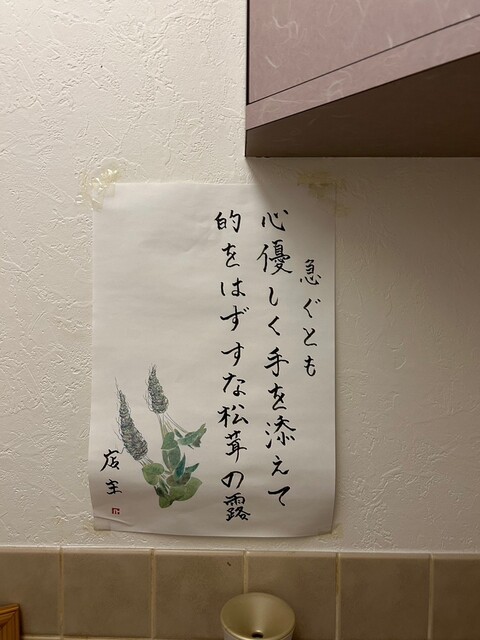 急ぐとも
心優しく手を添えて
的をはずすな松茸の露
店主